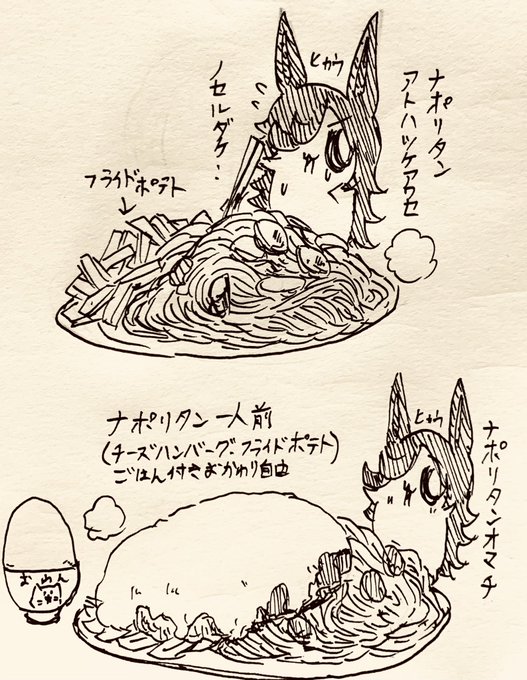 ヒカウ
ナポリタン
アトハツケアワセ
ノセルダケ…
フライドポテト
ナポリタン一人前
(チーズハンバーグ・フライドポテト)
ごはん付きおかわり自由
ヒカウ
ナポリタンオマチ